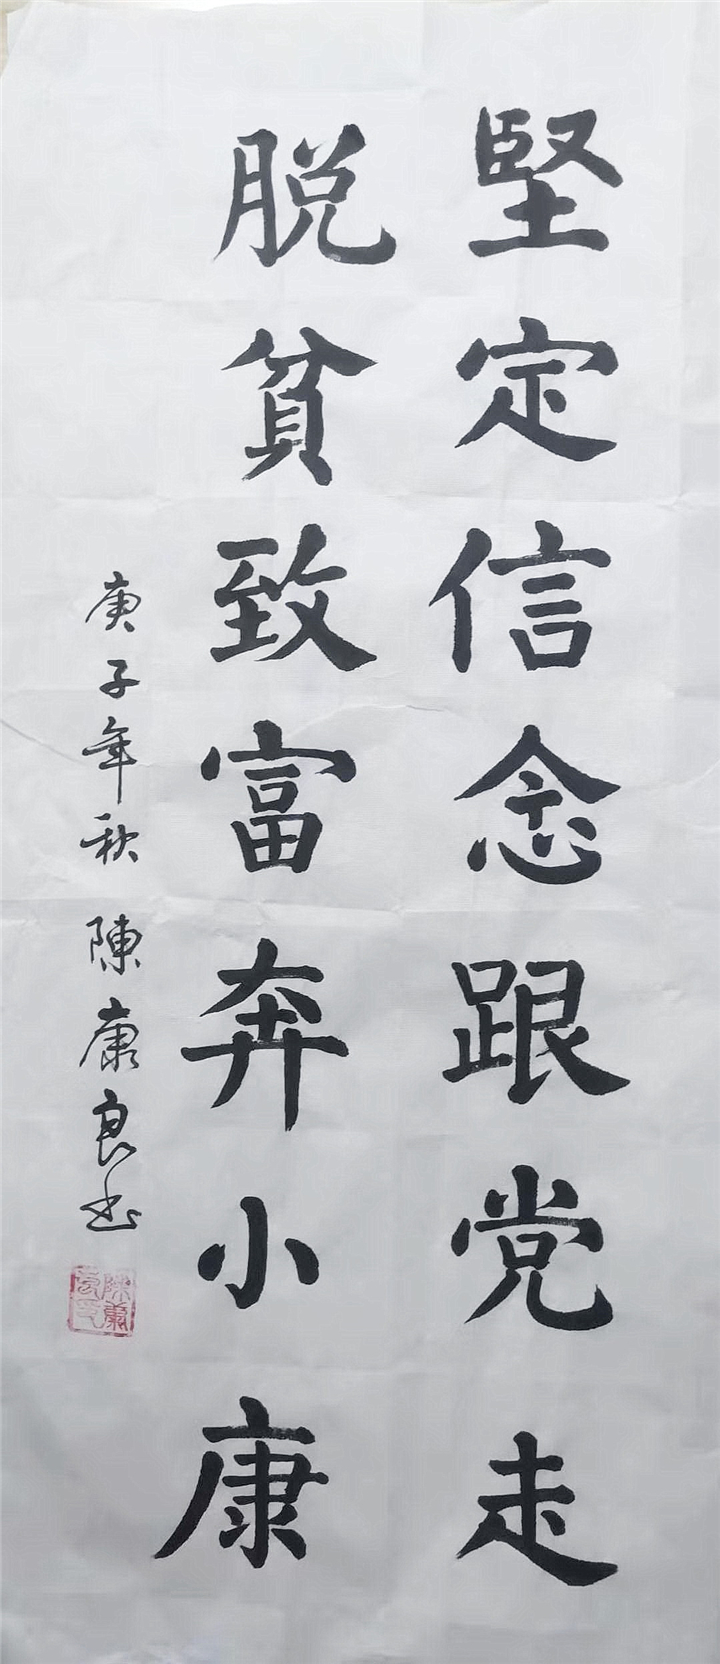 堅定信念跟党走
脱貧致富奔小康
庚子年秋 陳康良书
陳康良印